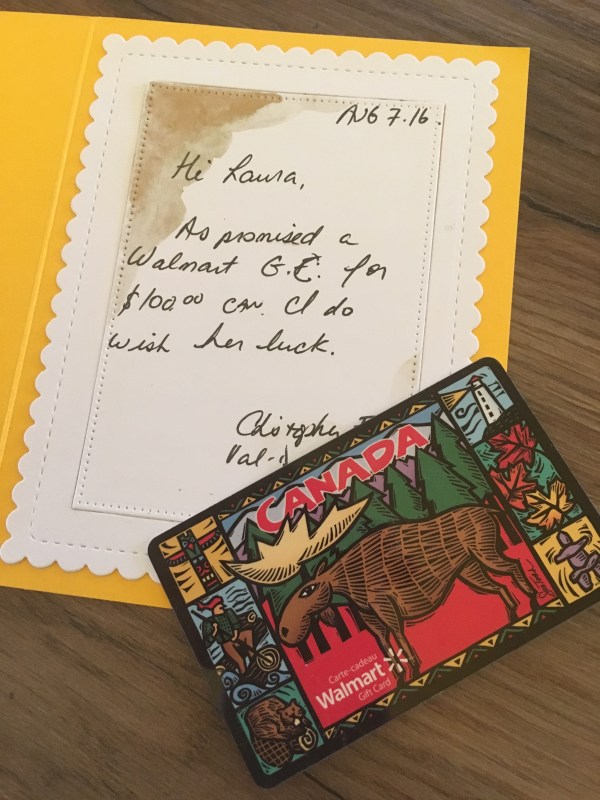 AUG 7.16.
Hi Laura,
As promised a
Walmart G.C. for
$100.00 CAN. I do
wish her luck.
Val-
CANADA
Carte-cadeau
Walmart
Gift Card